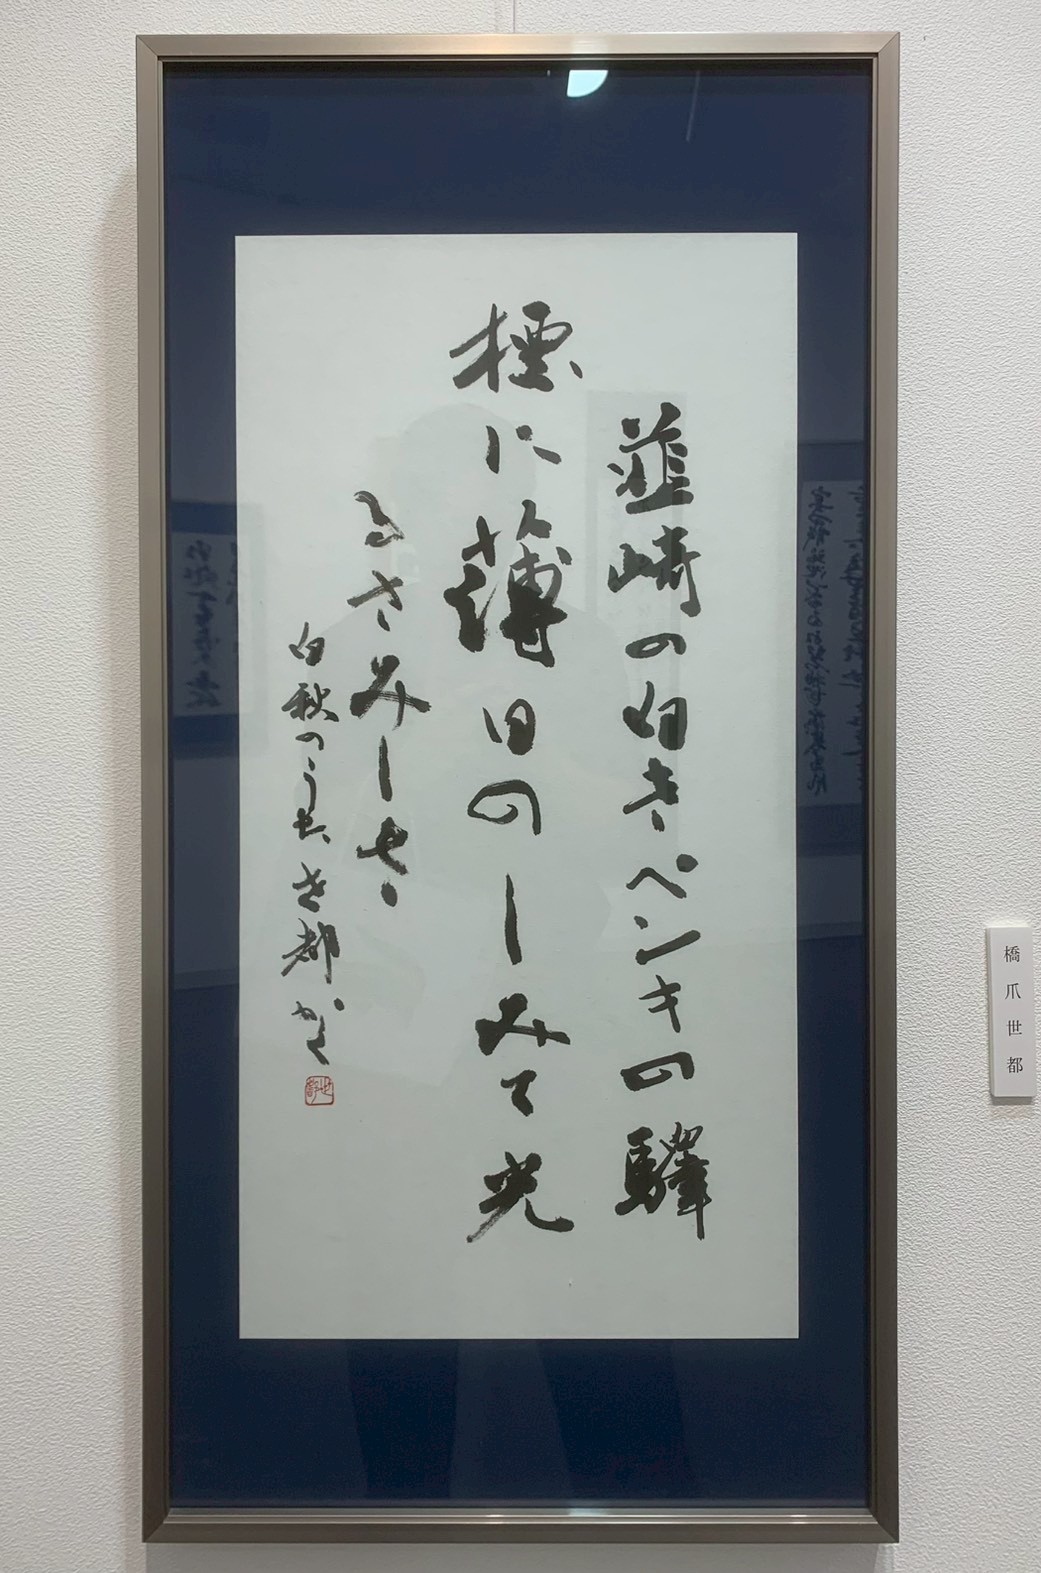 韮崎の白きペンキの驛
標に薄日のしみて光
るさみしさ
白秋のうた 世都かく
橋爪世都